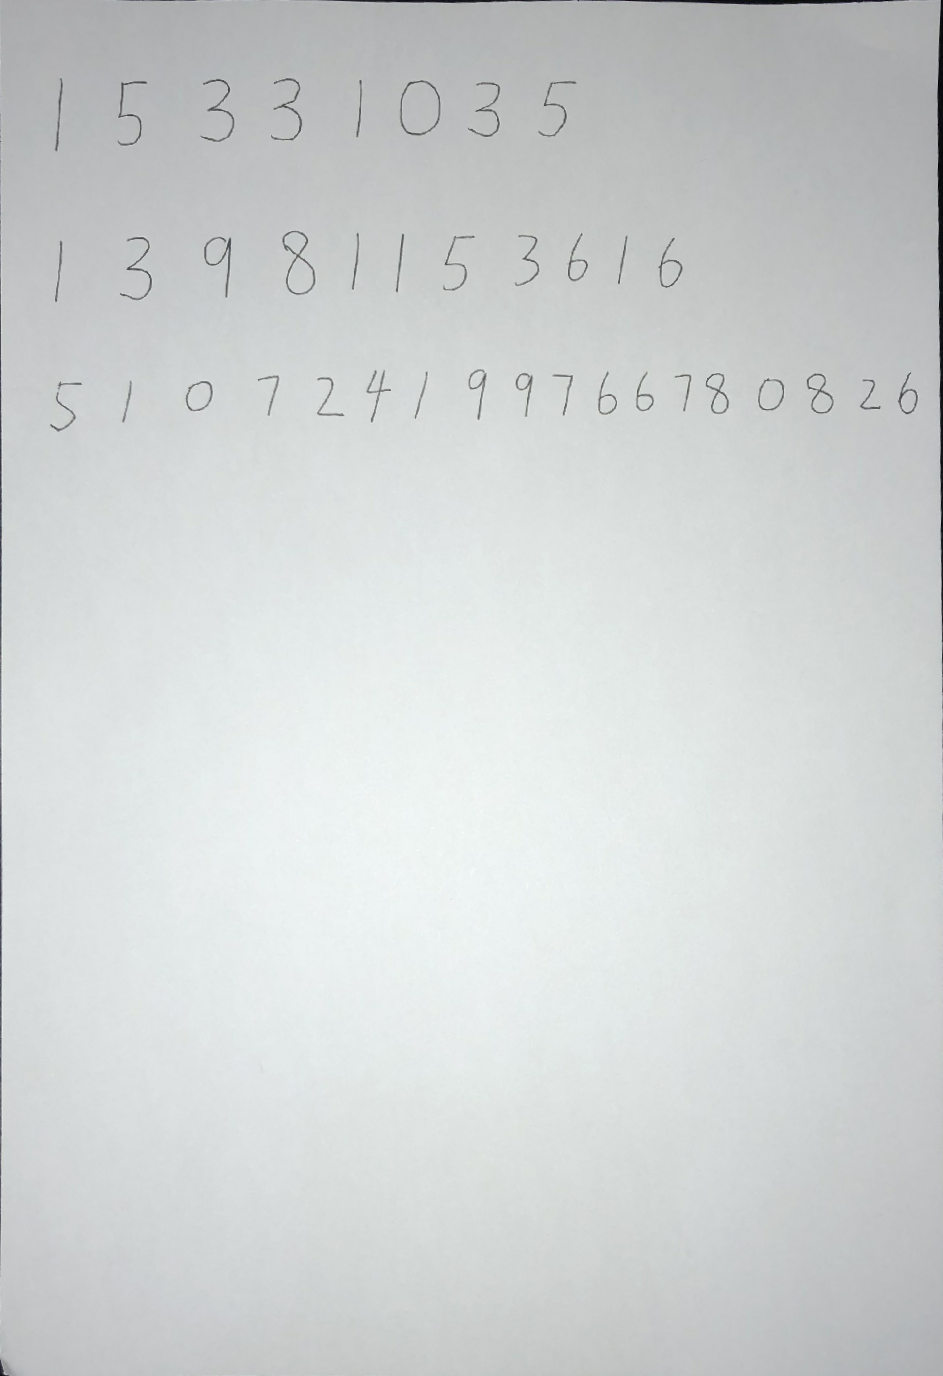 1 5 3 3 1 0 3 5
1 3 9 8 1 1 5 3 6 1 6
5 1 0 7 2 4 1 9 9 7 6 6 7 8 0 8 2 6